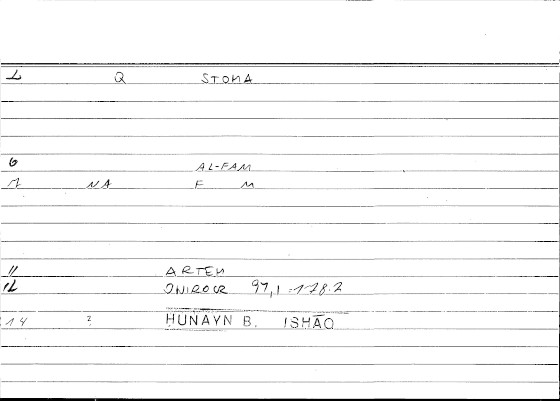 1 Q STOMA
6 AL-FAM
7 NA F M
11 ARTEM
12 ONIROCR 97,1-178.2
14 ? HUNAYN B. ISHĀQ